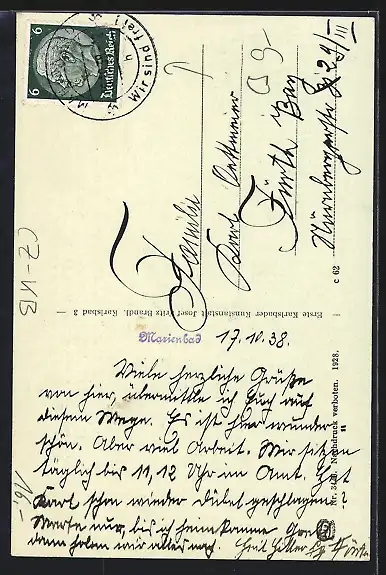 6
6
Deutsches Reich
Wir sind frei!
Familie
Karl
Fürth i/Bay
Nürnbergerstr 29/III
CZ-MB
Erste Karlsbader Kunstanstalt Josef Fritz Brandl, Karlsbad 3
c 62
Nachdruck verboten. 1928.
Marienbad
17.10.38.
Viele herzliche Grüße
von hier, übermittle ich Euch auf
diesem Wege. Es ist hier wunder
schön. Aber viel Arbeit. Wir sitzen
täglich bis 11, 12 Uhr im Amt. Hat
Karl schon wieder geschlagen?
Warte nur, bis ich heim komme
dann holen wir alles nach. Heil Hitler
16,-